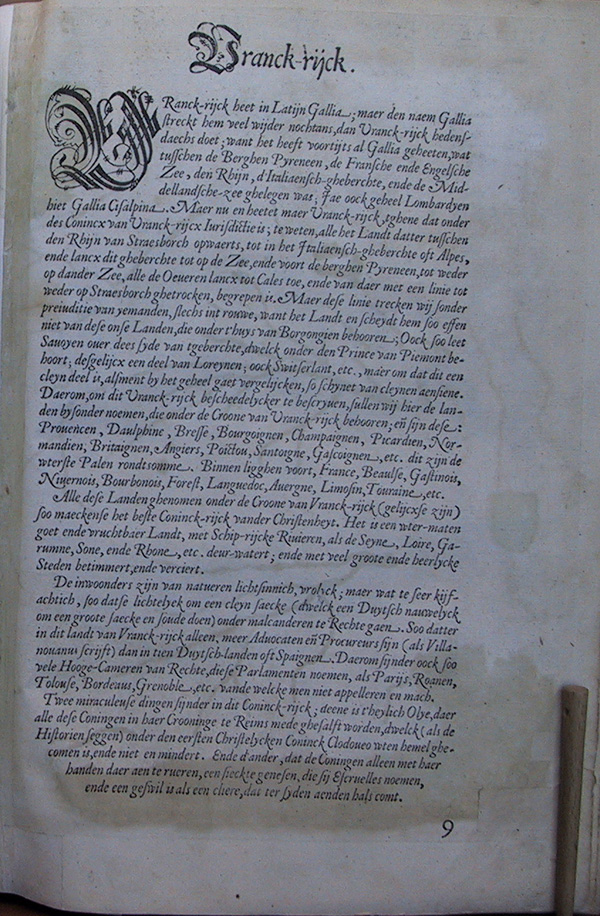 Vranck-rijck.
VRanck-rijck heet in Latijn Gallia; maer den naem Gallia
streckt hem veel wijder nochtans, dan Vranck-rijck hedens-
daechs doet; want het heeft voortijts al Gallia geheeten, wat
tusschen de Berghen Pyreneen, de Fransche ende Engelsche
Zee, den Rhijn, d'Italiaensch-gheberchte, ende de Mid-
dellandsche-zee ghelegen was; Jae oock geheel Lombardyen
hiet Gallia Cisalpina. Maer nu en heetet maer Vranck-rijck, tghene dat onder
des Conincx van Vranck-rijcx Iurisdictie is; te weten, alle het Landt datter tusschen
den Rhijn van Straesborch opwaerts, tot in het Italiaensch-gheberchte oft Alpes,
ende lancx dit gheberchte tot op de Zee, ende voort de berghen Pyreneen, tot weder
op dander Zee, alle de Oeueren lancx tot Cales toe, ende van daer met een linie tot
weder op Straesborch ghetrocken, begrepen is. Maer dese linie trecken wij sonder
preiuditie van yemanden, slechs int rouwe, want het Landt en scheydt hem soo effen
niet van dese onse Landen, die onder t'huys van Borgongien behooren; Oock soo leet
Sauoyen ouer dees syde van tgeberchte, dwelck onder den Prince van Piemont be-
hoort; desgelijcx een deel van Loreynen; oock Switserlant, etc., maer om dat dit een
cleyn deel is, alsment by het geheel gaet vergelijcken, so schynet van cleynen aensiene.
Daerom, om dit Vranck-rijck bescheedelycker te bescryuen, sullen wij hier de lan-
den bysonder noemen, die onder de Croone van Vranck-rijck behooren; eñ sijn dese:
Prouencen, Daulphine, Bresse, Bourgoignen, Champaignen, Picardien, Nor-
mandien, Britaignen, Angiers, Poictou, Santoigne, Gascoignen, etc. dit zijn de
wterste Palen rondtsomme. Binnen ligghen voort, France, Beaulse, Gastinois,
Niuernois, Bourbonois, Forest, Languedoc, Auergne, Limosin, Touraine, etc.
Alle dese Landen ghenomen onder de Croone van Vranck-rijck (gelijcxse zijn)
soo maeckense het beste Coninck-rijck vander Christenheyt. Het is een wter-maten
goet ende vruchtbaer Landt, met Schip-rijcke Riuieren, als de Seyne, Loire, Ga-
rumne, Sone, ende Rhone, etc. deur-watert; ende met veel groote ende heerlycke
Steden betimmert, ende verciert.
De inwoonders zijn van natueren lichtsinnich, vrolyck; maer wat te seer kijf-
achtich, soo datse lichtelyck om een cleyn saecke (dwelck een Duytsch nauwelyck
om een groote saecke en soude doen) onder malcanderen te Rechte gaen. Soo datter
in dit landt van Vranck-rijck alleen, meer Aduocaten eñ Procureurs sijn (als Villa-
nouanus scrijft) dan in t'ien Duytsch-landen oft Spaignen. Daerom sijnder oock soo
vele Hooge-Cameren van Rechte, diese Parlamenten noemen, als Parijs, Roanen,
Tolouse, Bordeaus, Grenoble, etc. vande welcke men niet appelleren en mach.
Twee miraculeuse dingen sijnder in dit Coninck-rijck; deene is t'heylich Olye, daer
alle dese Coningen in haer Crooninge te Reims mede ghesalft worden, dwelck (als de
Historien seggen) onder den eersten Christelycken Coninck Clodoueo wten hemel ghe-
comen is, ende niet en mindert. Ende d'ander, dat de Coningen alleen met haer
handen daer aen te rueren, een sieckte genesen, die sij Escruelles noemen,
ende een geswil is als een cliere, dat ter syden aenden hals comt.
9